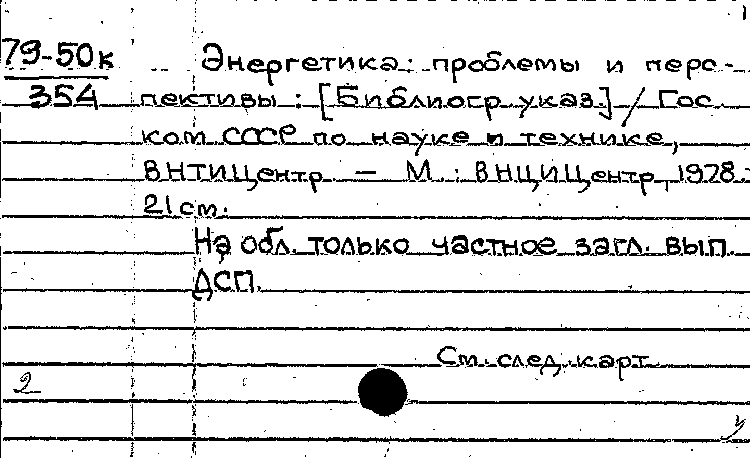 79-50к
354
Энергетика: проблемы и перс-
пективы : [Библиогр. указ.] / Гос.
ком СССР по науке и технике,
ВНТИЦентр — М. : ВНТИЦентр, 1978.-
21 см.
На обл. только частное загл. вып.
ДСП.
См. след. карт
2